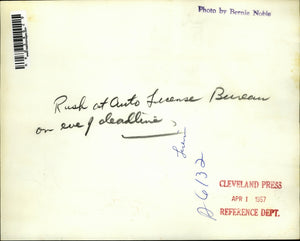 Photo by Bernie Noble
Rush at Auto License Bureau
on eve of deadline
CLEVELAND PRESS
APR 1 1957
REFERENCE DEPT.